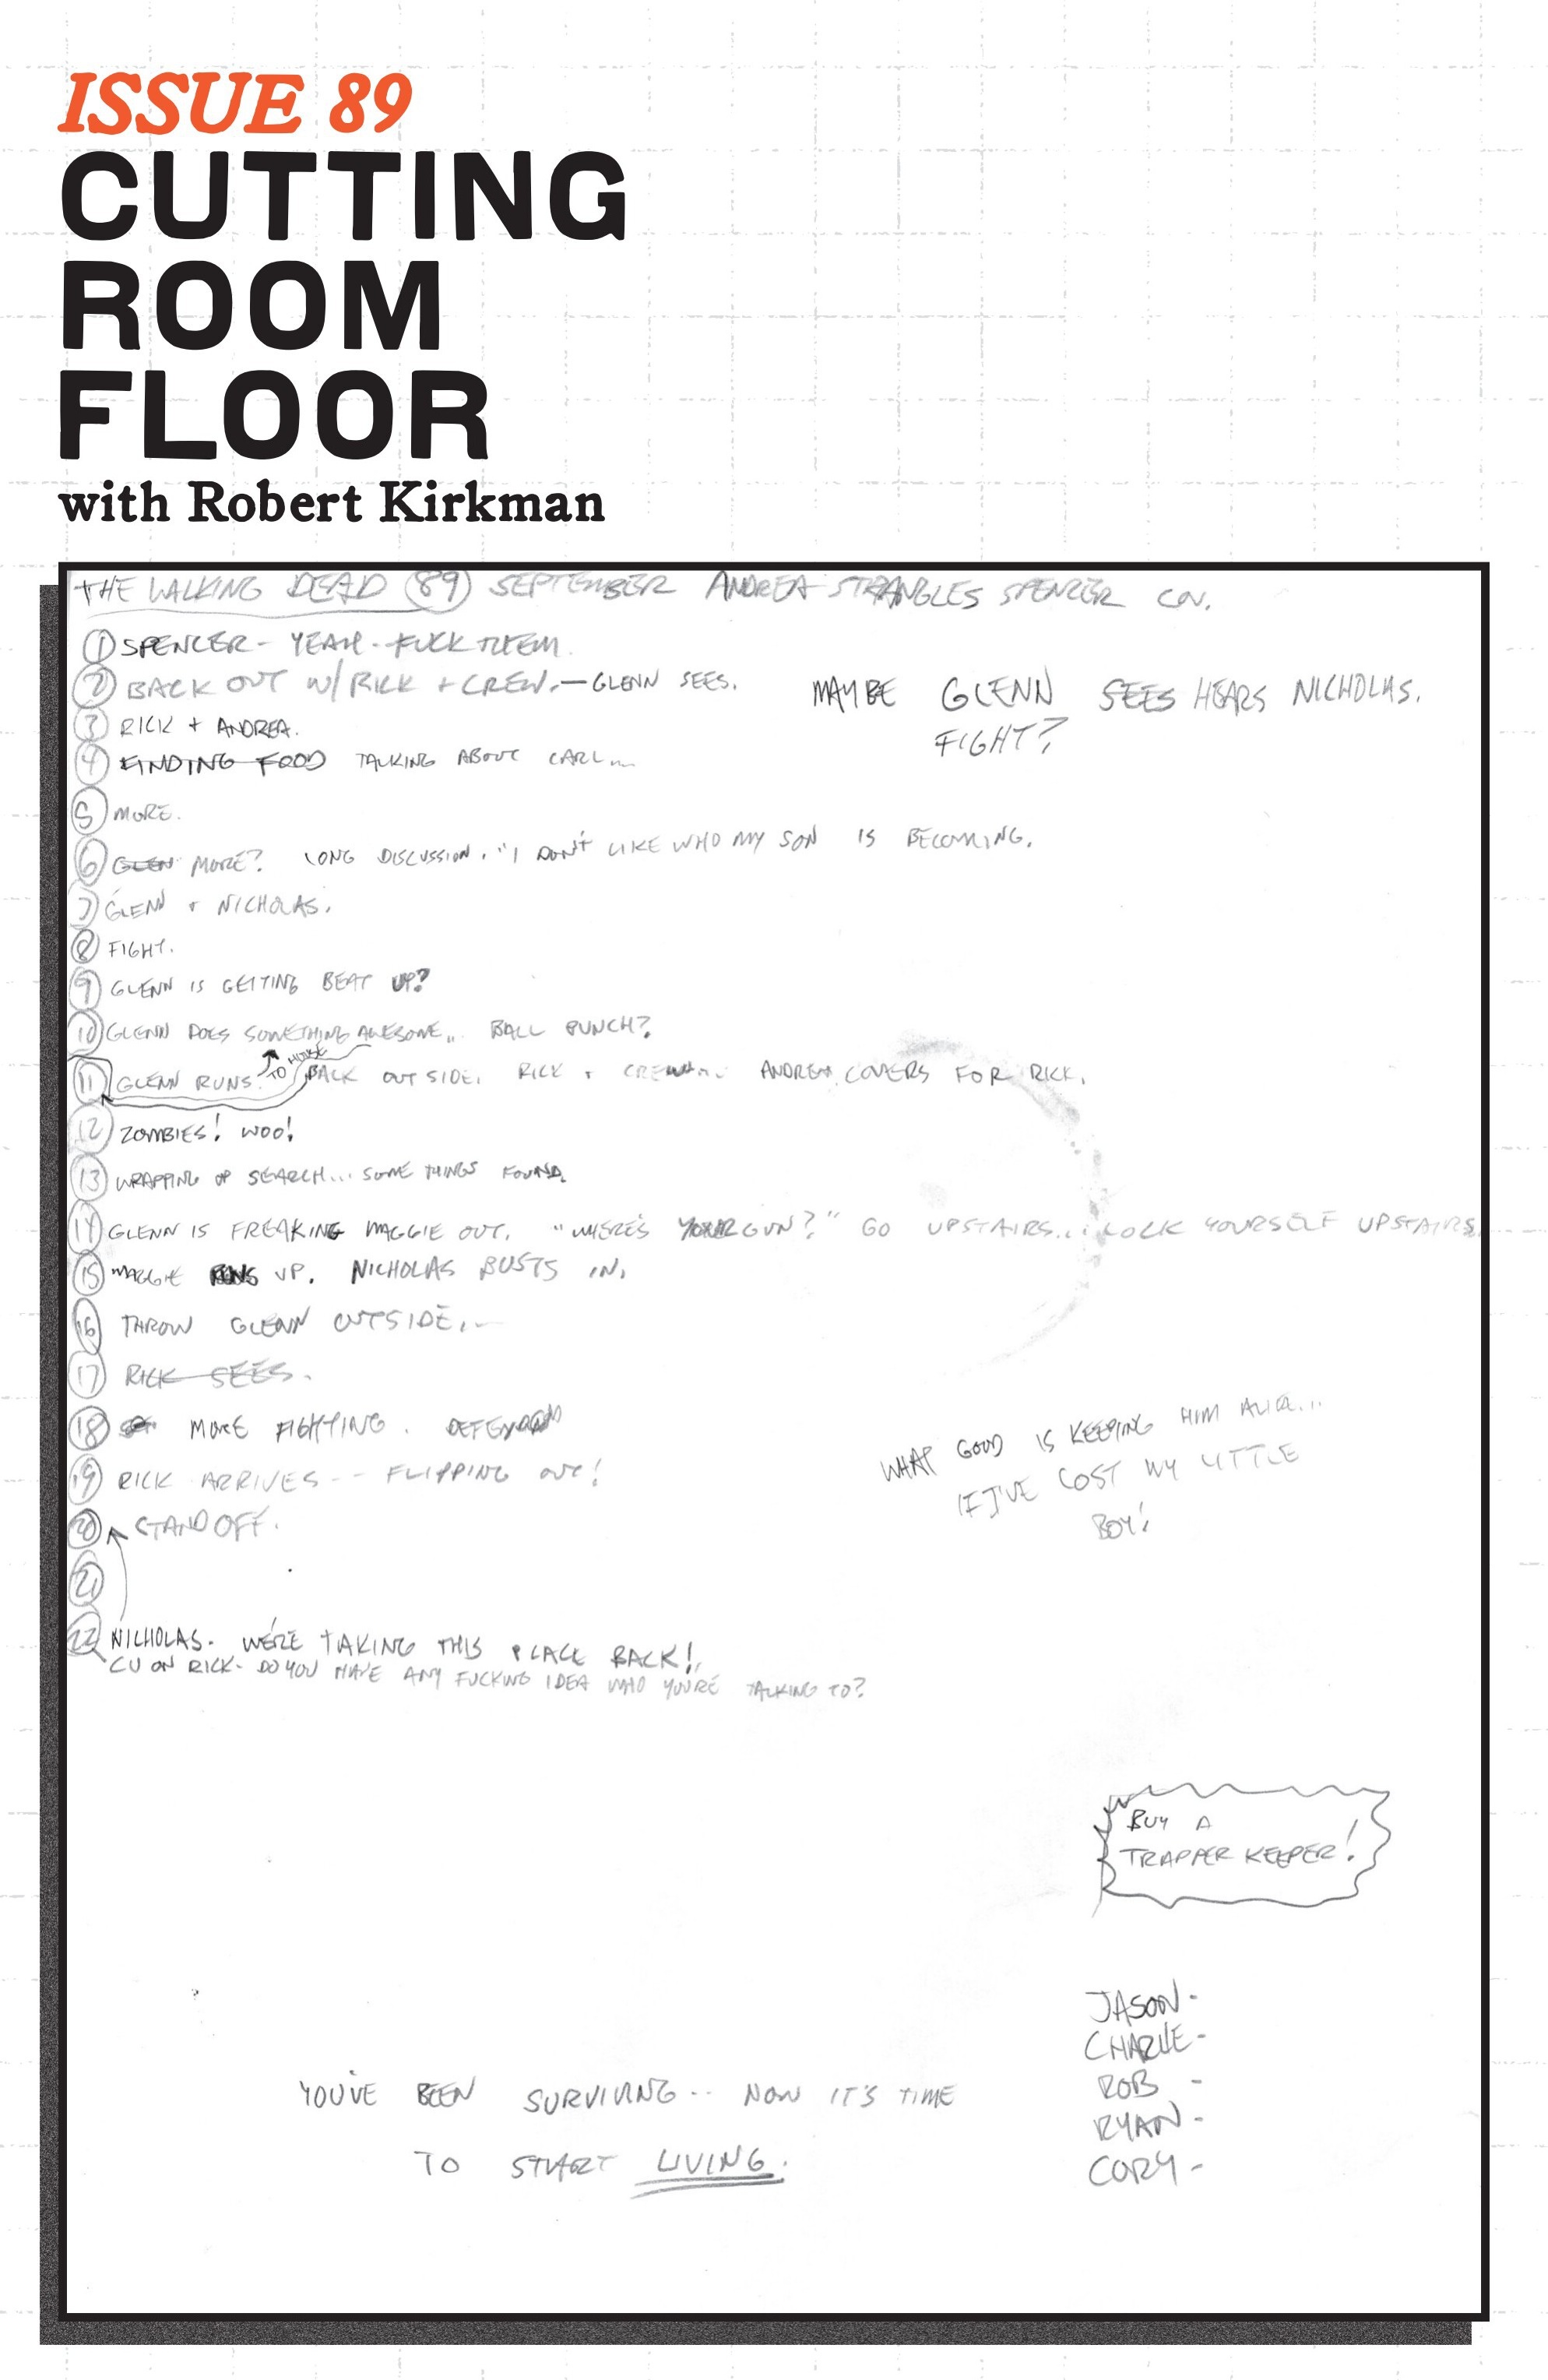 ISSUE 89
CUTTING
ROOM
FLOOR
with Robert Kirkman
THE WALKING DEAD 89 SEPTEMBER ANDREA STRANGLES SPENCER COV.
1 SPENCER - YEAH - FUCK THEM.
2 BACK OUT W/ RICK + CREW. — GLENN SEES.
MAYBE GLENN SEES HEARS NICHOLAS.
FIGHT?
3 RICK + ANDREA.
4 FINDING FOOD TALKING ABOUT CARL...
5 MORE.
6 GLEN MORE? LONG DISCUSSION. "I DON'T LIKE WHO MY SON IS BECOMING.
7 GLENN + NICHOLAS.
8 FIGHT.
9 GLENN IS GETTING BEAT UP?
10 GLENN DOES SOMETHING AWESOME... BALL PUNCH?
11 GLENN RUNS. TO HOUSE BACK OUTSIDE. RICK + CREW... ANDREA COVERS FOR RICK.
12 ZOMBIES! WOO!
13 WRAPPING UP SEARCH... SOME THINGS FOUND.
14 GLENN IS FREAKING MAGGIE OUT. "WHERE'S YOUR GUN?" GO UPSTAIRS... LOCK YOURSELF UPSTAIRS.
15 MAGGIE RUNS UP. NICHOLAS BUSTS IN.
16 THROW GLENN OUTSIDE.--
17 RICK SEES.
18 MORE FIGHTING.
19 RICK ARRIVES -- FLIPPING OUT!
WHAT GOOD IS KEEPING HIM ALIVE...
IF I'VE LOST MY LITTLE
BOY!
20 STANDOFF.
21
22 NICHOLAS - WE'RE TAKING THIS PLACE BACK!
CU ON RICK - DO YOU HAVE ANY FUCKING IDEA WHO YOU'RE TALKING TO?
BUY A
TRAPPER KEEPER!
JASON -
CHARLIE -
ROB -
RYAN -
CORY -
YOU'VE BEEN SURVIVING -- NOW IT'S TIME
TO START LIVING.